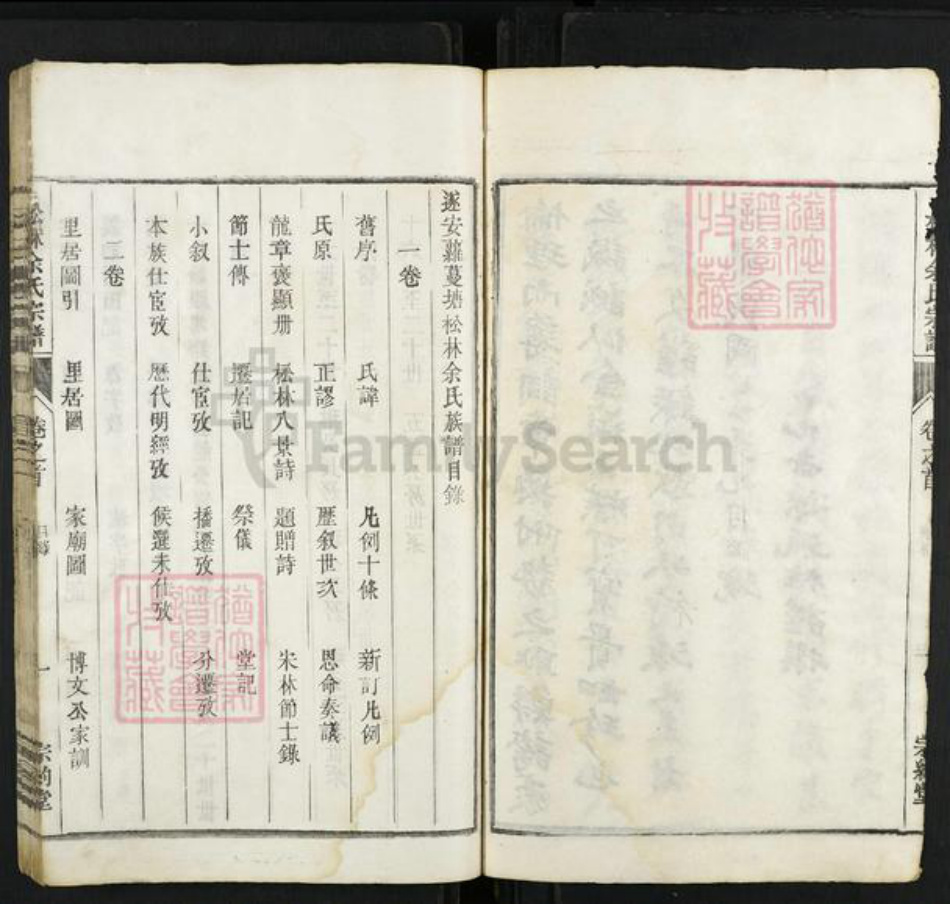 遂安蘿蔓塘松林余氏族譜目錄
一卷
舊序 氏諱 凡例十條 新訂凡例
氏原 正謬 歷叙世次 恩命奏議
龍章褒顯册 松林八景詩 題贈詩 宋林節士錄
節士傳 遷居記 祭儀 堂記
小叙 仕宦攷 播遷攷 分遷攷
本族仕宦攷 歷代明經攷 候選未仕攷
二卷
里居圖引 里居圖 家廟圖 博文公家訓
松林余氏宗譜 卷之首 目錄 一
余氏宗譜 卷之首
譜學會 收藏
譜學會 收藏
FamilySearch